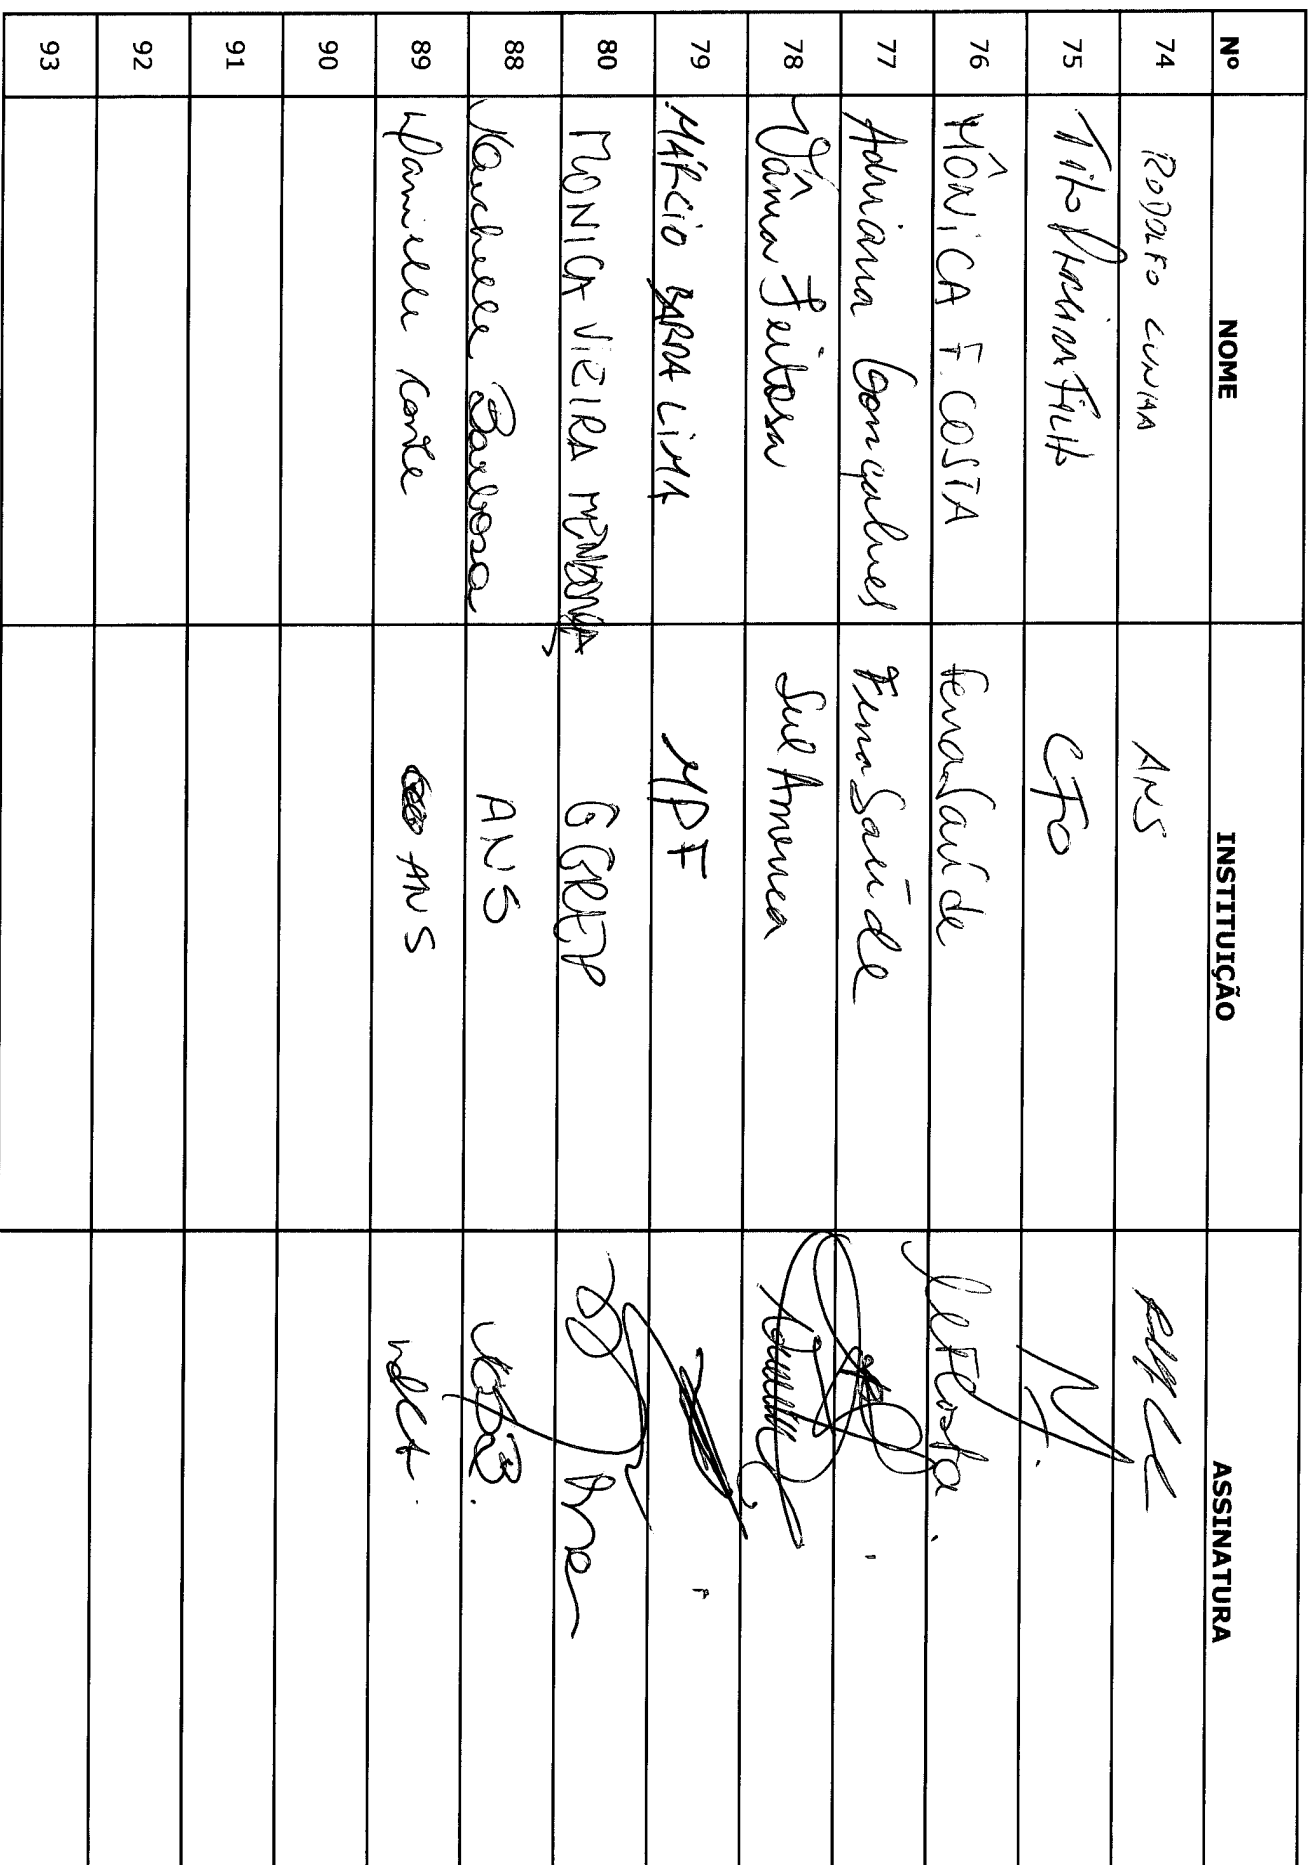 Nº NOME INSTITUIÇÃO ASSINATURA
74 RODOLFO CUNHA ANS
75 Tito Filho CFO
76 MÔNICA F. COSTA FenaSaúde
77 Adriana Gonçalves FenaSaúde
78 Vânia Feitosa Sul America
79 MÁRCIO BARRA LIMA MPF
80 MONICA VIEIRA MENDONÇA GGREP
88 Barbosa ANS
89 Danielle Conte ANS
90
91
92
93